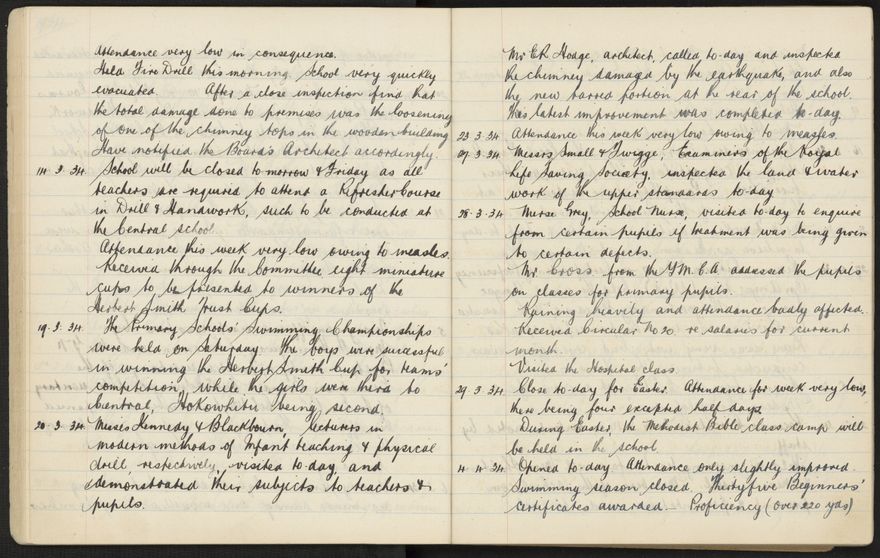 Attendance very low in consequence.
Held Fire Drill this morning. School very quickly
evacuated. After a close inspection find that
the total damage done to premises was the loosening
of one of the chimney tops in the wooden building.
Have notified the Board's Architect accordingly.
14. 3. 34. School will be closed to-morrow & Friday as all
teachers are required to attend a Refresher Course
in Drill & Handwork, such to be conducted at
the Central School.
Attendance this week very low owing to measles.
Received through the Committee eight miniature
cups to be presented to winners of the
Herbert Smith Trust Cups.
19. 3. 34. The Primary Schools' Swimming Championships
were held on Saturday. The boys were successful
in winning the Herbert Smith Cup for teams'
competition, while the girls were third to
Central, Hokowhitu being second.
20. 3. 34. Misses Kennedy & Blackbourn, lecturers in
modern methods of Infant teaching & physical
drill, respectively, visited to-day and
demonstrated their subjects to teachers &
pupils.
Mr E.R. Hodge, architect, called to-day and inspected
the chimney damaged by the earthquake, and also
the new tarred portion at the rear of the school.
This latest improvement was completed to-day.
23. 3. 34. Attendance this week very low owing to measles.
27. 3. 34. Messrs Small & Twigge, Examiners of the Royal
Life Saving Society, inspected the land & water
work of the upper standards to-day
28. 3. 34 Nurse Grey, School Nurse, visited to-day to enquire
from certain pupils if treatment was being given
to certain defects.
Mr Cross from the Y.M.C.A. addressed the pupils
on classes for primary pupils.
Raining heavily and attendance badly affected.
Received Circular No 20 re salaries for current
month.
Visited the Hospital class
29. 3. 34 Close to-day for Easter. Attendance for week very low,
there being four excepted half days.
During Easter, the Methodist Bible class camp will
be held in the school
4. 4. 34. Opened to-day. Attendance only slightly improved.
Swimming season closed. Thirtyfive Beginners'
certificates awarded.— Proficiency (over 220 yds)